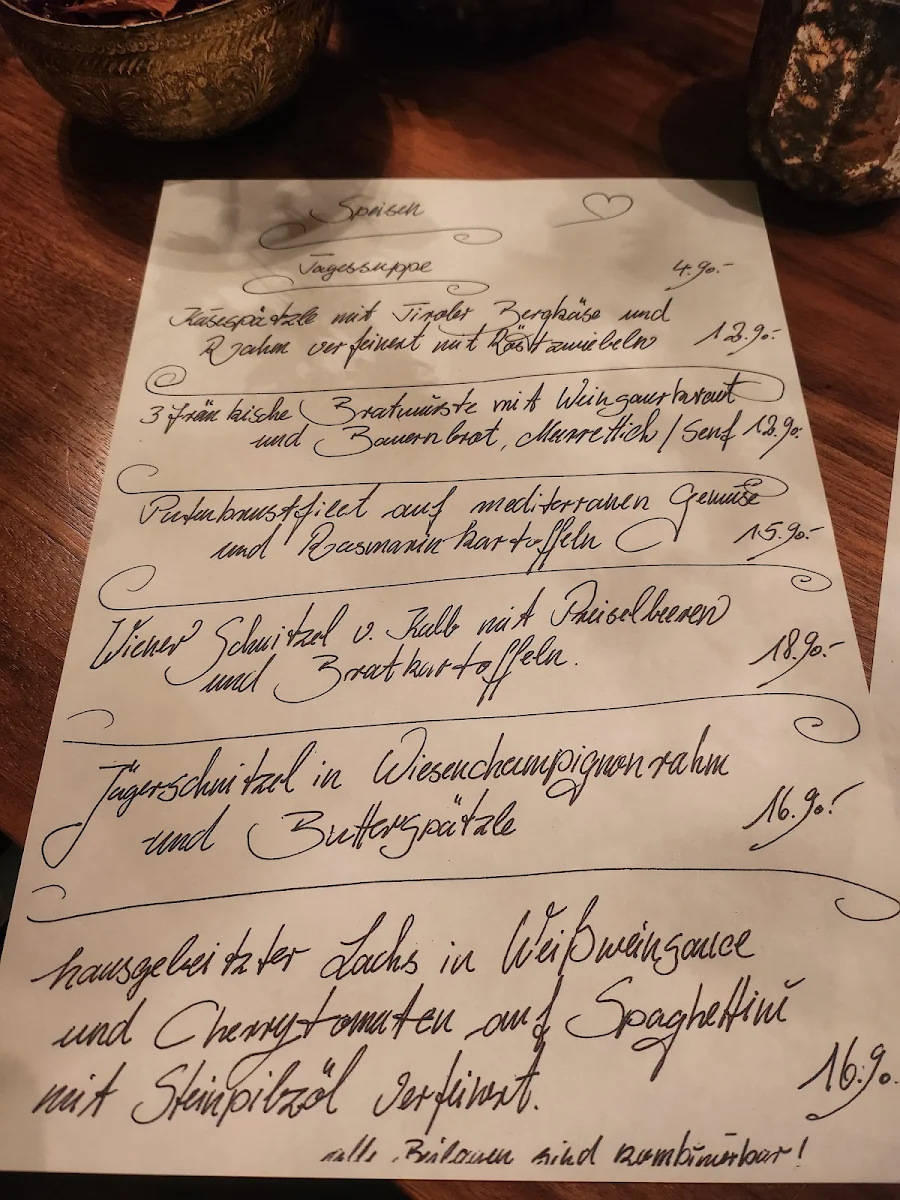 Speisen
Tagessuppe 4.90.-
Käsespätzle mit Tiroler Bergkäse und
Rahm verfeinert mit Röstzwiebeln 12.90.-
3 fränkische Bratwürste mit Weinsauerkraut
und Bauernbrot, Meerrettich / Senf 12.90.-
Putenbrustfilet auf mediterranen Gemüse
und Rosmarinkartoffeln 15.90.-
Wiener Schnitzel v. Kalb mit Preiselbeeren
und Bratkartoffeln. 18.90.-
Jägerschnitzel in Wiesenchampignonrahm
und Butterspätzle 16.90.-
hausgebeitzter Lachs in Weißweinsauce
und Cherrytomaten auf Spaghettini
mit Steinpilzöl verfeinert. 16.90.
alle Beilagen sind kombinierbar!